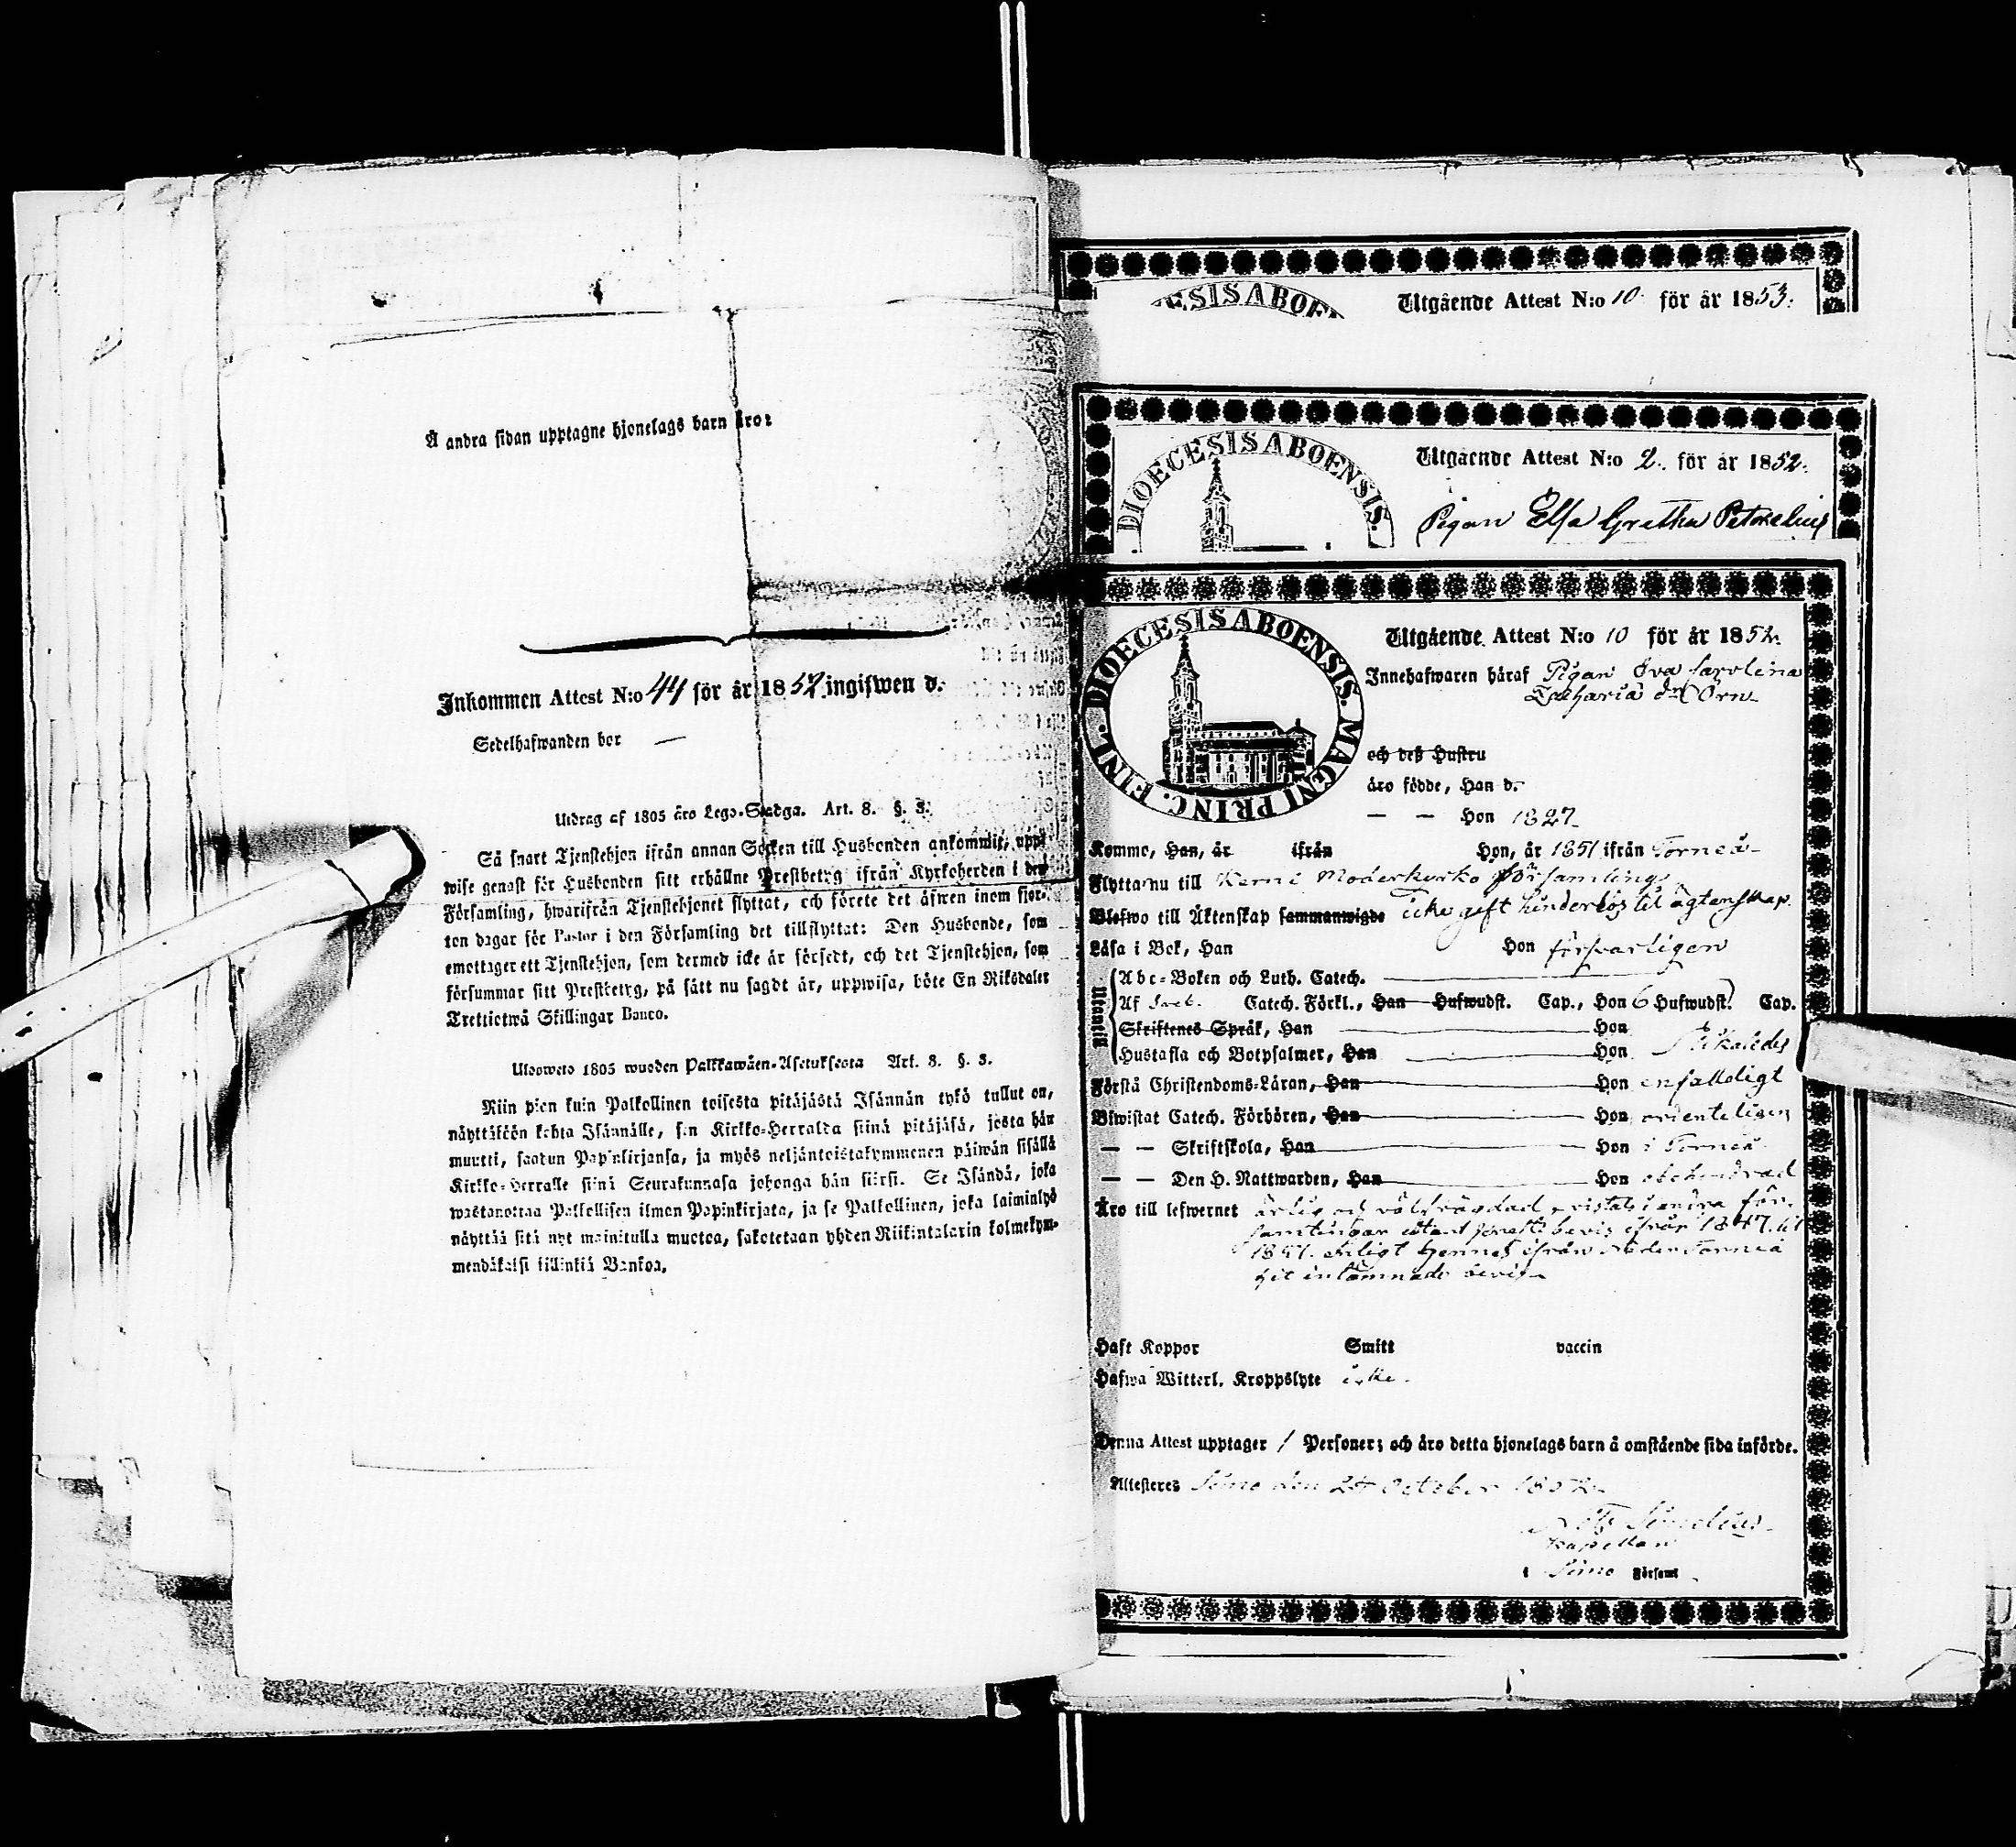 Å andra sidan upptagne hjonelags barn äro:
Inkommen Attest N:o 44 för år 1852 ingifwen d.
Sedelhafwanden bor —
Utdrag af 1805 års Lego-Stadga. Art. 8. §. 3.
Så snart Tjenstehjon ifrån annan Socken till Husbonden ankommit, upp-
wise genast för Husbonden sitt erhållne Prestbetyg ifrån Kyrkoherden i den
Församling, hwarifrån Tjenstehjonet flyttat, och förete det äfwen inom fjor-
ton dagar för Pastor i den Församling det tillflyttat: Den Husbonde, som
emottager ett Tjenstehjon, som dermed icke är försedt, och det Tjenstehjon, som
försummar sitt Prestbetyg, på sätt nu sagdt är, uppwisa, böte En Riksdaler
Trettiotwå Skillingar Banco.
Ulosweto 1805 wuoden Palkkawäen-Asetuksesta Art. 8. §. 3.
Niin pian kuin Palkollinen toisesta pitäjästä Isännän tykö tullut on,
näyttäköön kohta Isännälle, sen Kirkko-Herralda siinä pitäjäsä, josta hän
muutti, saadun Papinkirjansa, ja myös neljäntoistakymmenen päiwän sisällä
Kirkko-Herralle siinä Seurakunnasa johonga hän siirsi. Se Isändä, joka
wastanottaa Palkollisen ilman Papinkirjata, ja se Palkollinen, joka laiminlyö
näyttää sitä nyt mainitulla muotoa, sakotetaan yhden Riikintalarin kolmekym-
mendäkaksi killinkiä Bankoa.
DIOECESIS ABOEN
Utgående Attest N:o 10 för år 1853.
DIOECESIS ABOENSIS.
Utgående Attest N:o 2. för år 1852.
Pigan Elsa Gretha Petrelius
DIOECESIS ABOENSIS. MAGNI PRINC. FINL.
Utgående Attest N:o 10 för år 1852.
Innehafwaren häraf Pigan Eva Carolina
Zacharia dr Örn
och deß Hustru
äro födde, Han d.
— — Hon 1827
Komme, Han, år ifrån Hon, år 1851 ifrån Torneå
Flytta nu till Kemi Moderkyrko församling
Blefwo till Äktenskap sammanwigde Icke gift hinderlös til ägtenskap.
Läsa i Bok, Han Hon försvarligen
Utantill
Abc-Boken och Luth. Catech.
Af Catech. Förkl., Han Hufwudst. Cap., Hon 6 Hufwudst. Cap.
Skriftenes Språk, Han Hon
Hustafla och Botpsalmer, Han Hon
Förstå Christendoms-Läran, Han Hon enfalldigt
Biwistat Catech. Förhören, Han Hon ordenteligen
— — Skriftskola, Han Hon i Torneå
— — Den H. Nattwarden, Han Hon obehindrad
Äro till lefwernet ärlig och välfrägdad, vistats i andra för-
samlingar utan bevis ifrån 1847 til
1851. enligt hennes ifrån Neder Torneå
hit inlämnade bevis
Haft Koppor Smitt vaccin
Hafwa Witterl. Kroppslyte icke.
Denna Attest upptager 1 Personer; och äro detta hjonelags barn å omstående sida införde.
Attesteres Simo den 24 October 1852
Kapellan
i Simo Församl